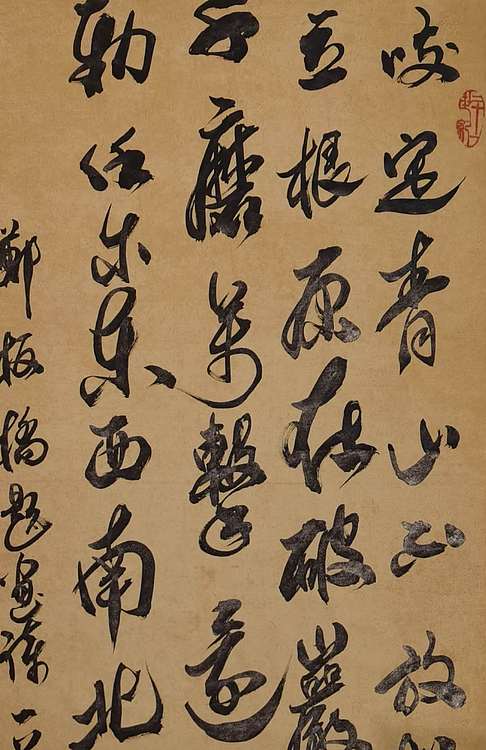 咬定青山不放
立根原在破巖
千磨萬擊還
勁任尔東西南北
鄭板橋題畫詩一